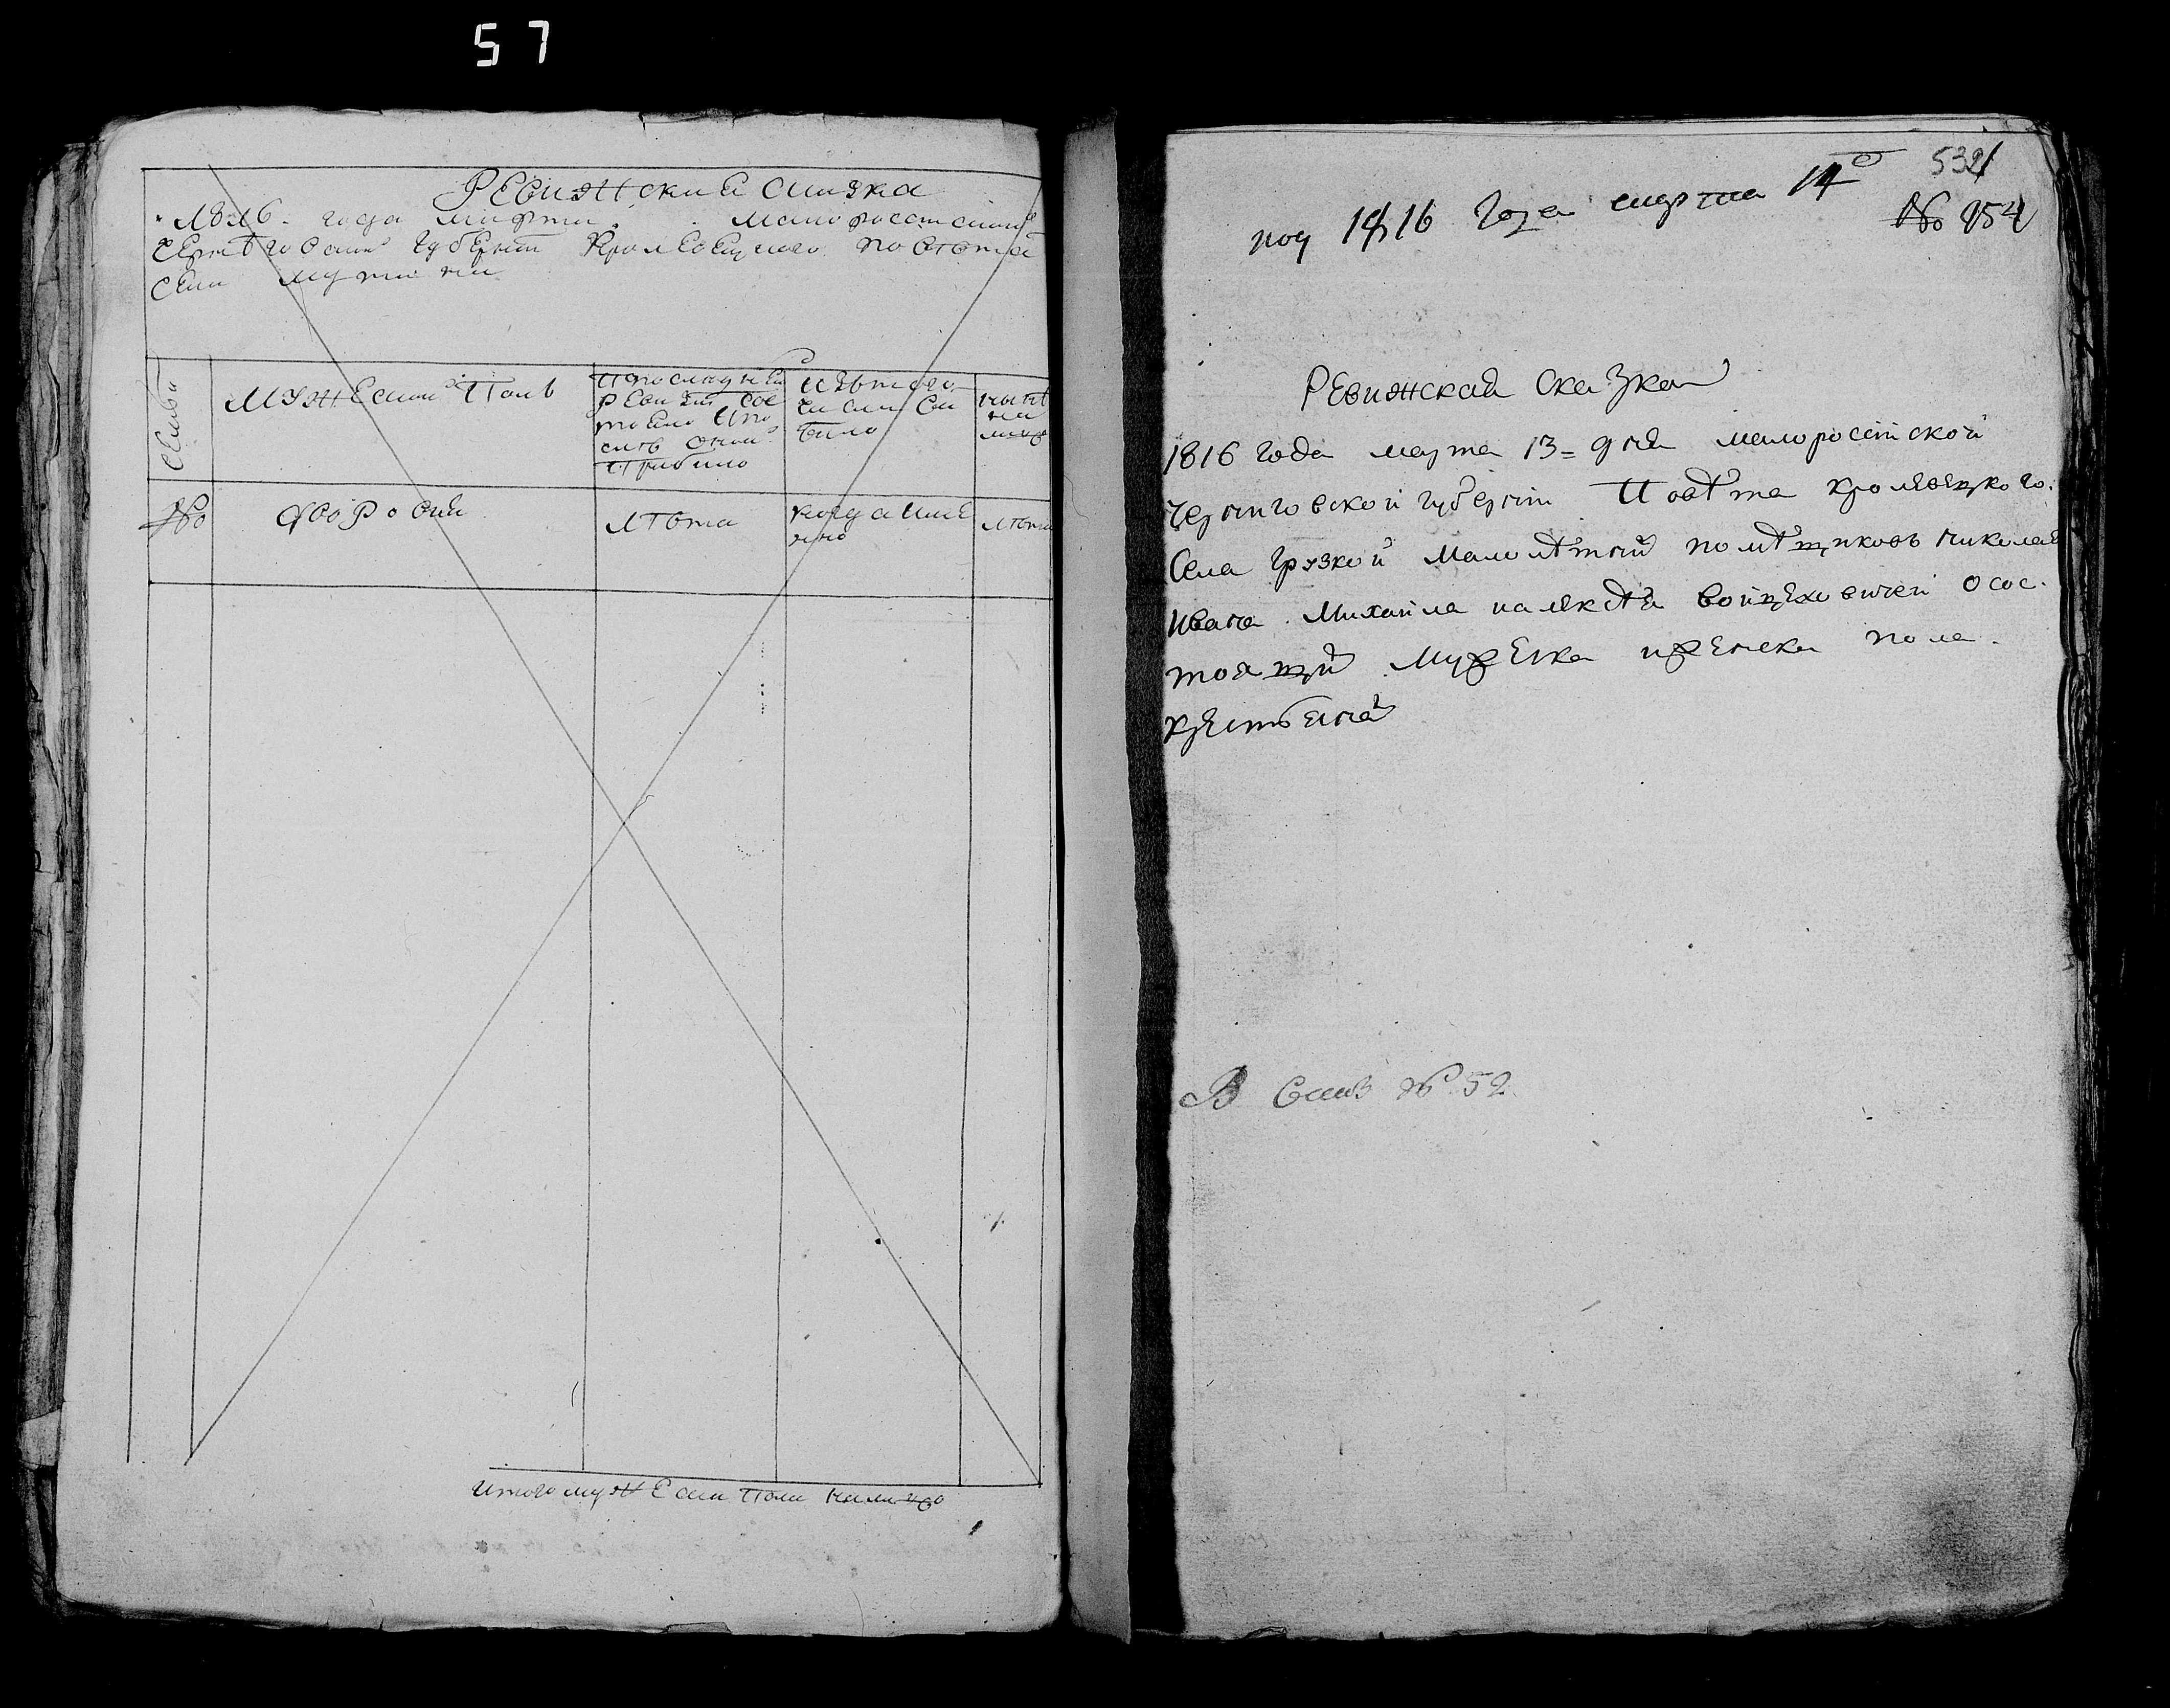 57
Ревижский сказка
1816 года марта малороссийской
Чернѣговской губернии Кролевецкого повѣта
села мутина
семьи
Мужеский полъ
По последней ревизии состояло и после оной прибыло
Изъ того числа выбыло
ныне на лицо
№
дворовия
лѣта
когда имянно
лѣта
Итого мужеска пола налицо
532
№ 254
под 1816 года марта 14
Ревижская сказка
1816 года марта 13= дня малоросийской
черниговской губернѣи Повѣта кролевецкого
Села грузкой малолѣтних помѣщиковъ николая
ивана михаила и алексѣя войцеховичей осос-
тоящих мужеска и женска пола
крестьянах
В Связ № 52